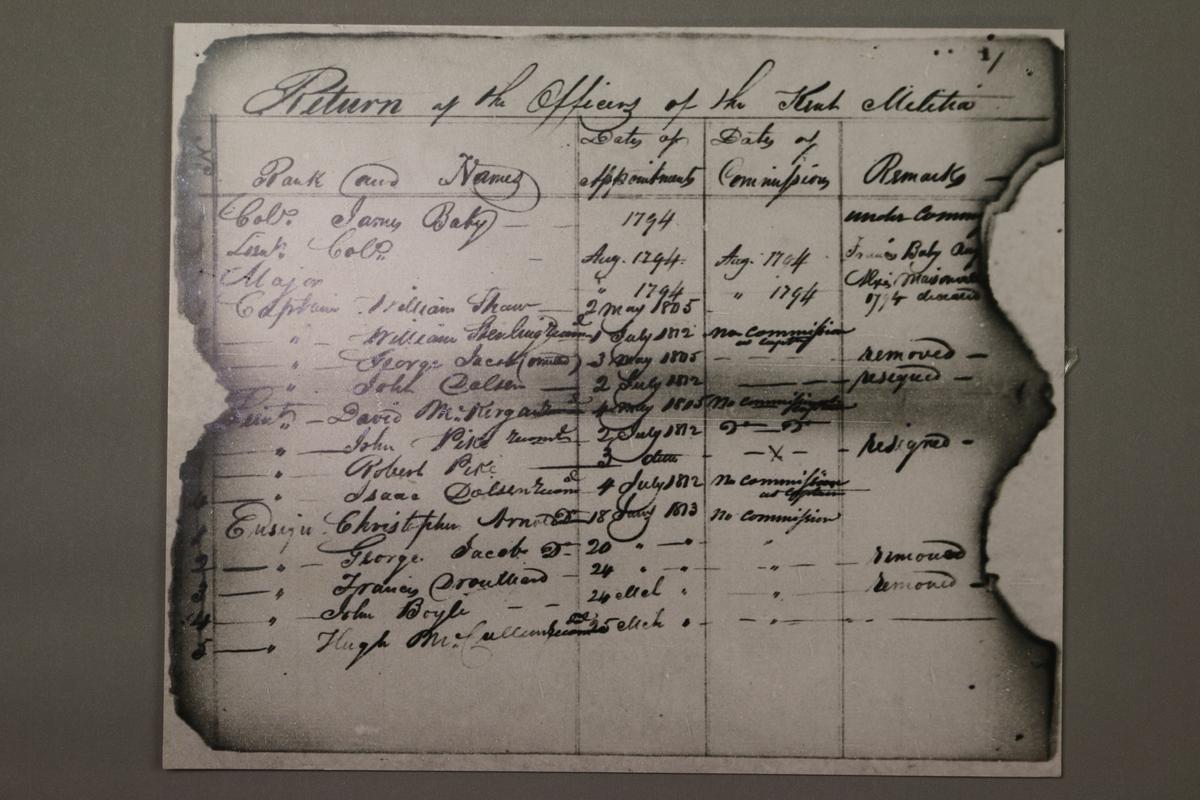 Return of the Officers of the Kent Militia
Rank and Names Dates of Appointments Dates of Commissions Remarks
Colo. James Baby 1794 under Commn
Lieut. Colo. Aug. 1794 Aug. 1794 Francis Baby
Major " 1794 " 1794 1794 deceased
Captain William Shaw 2 May 1805
" William 1 July 1812 No Commission as Captn
" George Jacob 3 May 1805 removed
" John Dolsen 2 July 1812 resigned
Lieut. David McKergan 4 May 1805 No Commission
" John Pike 2 July 1812 Do Do
" Robert Pike 3 ditto X resigned
" Isaac Dolsen 4 July 1812 No Commission as Captain
Ensign Christopher Arnold Do 18 Jany 1813 No Commission
" George Jacob Do 20 " " "
" Francis Drouillard 24 " " " removed
" John Boyle 24 Mch " " removed
" Hugh McCullum 25 Mch "